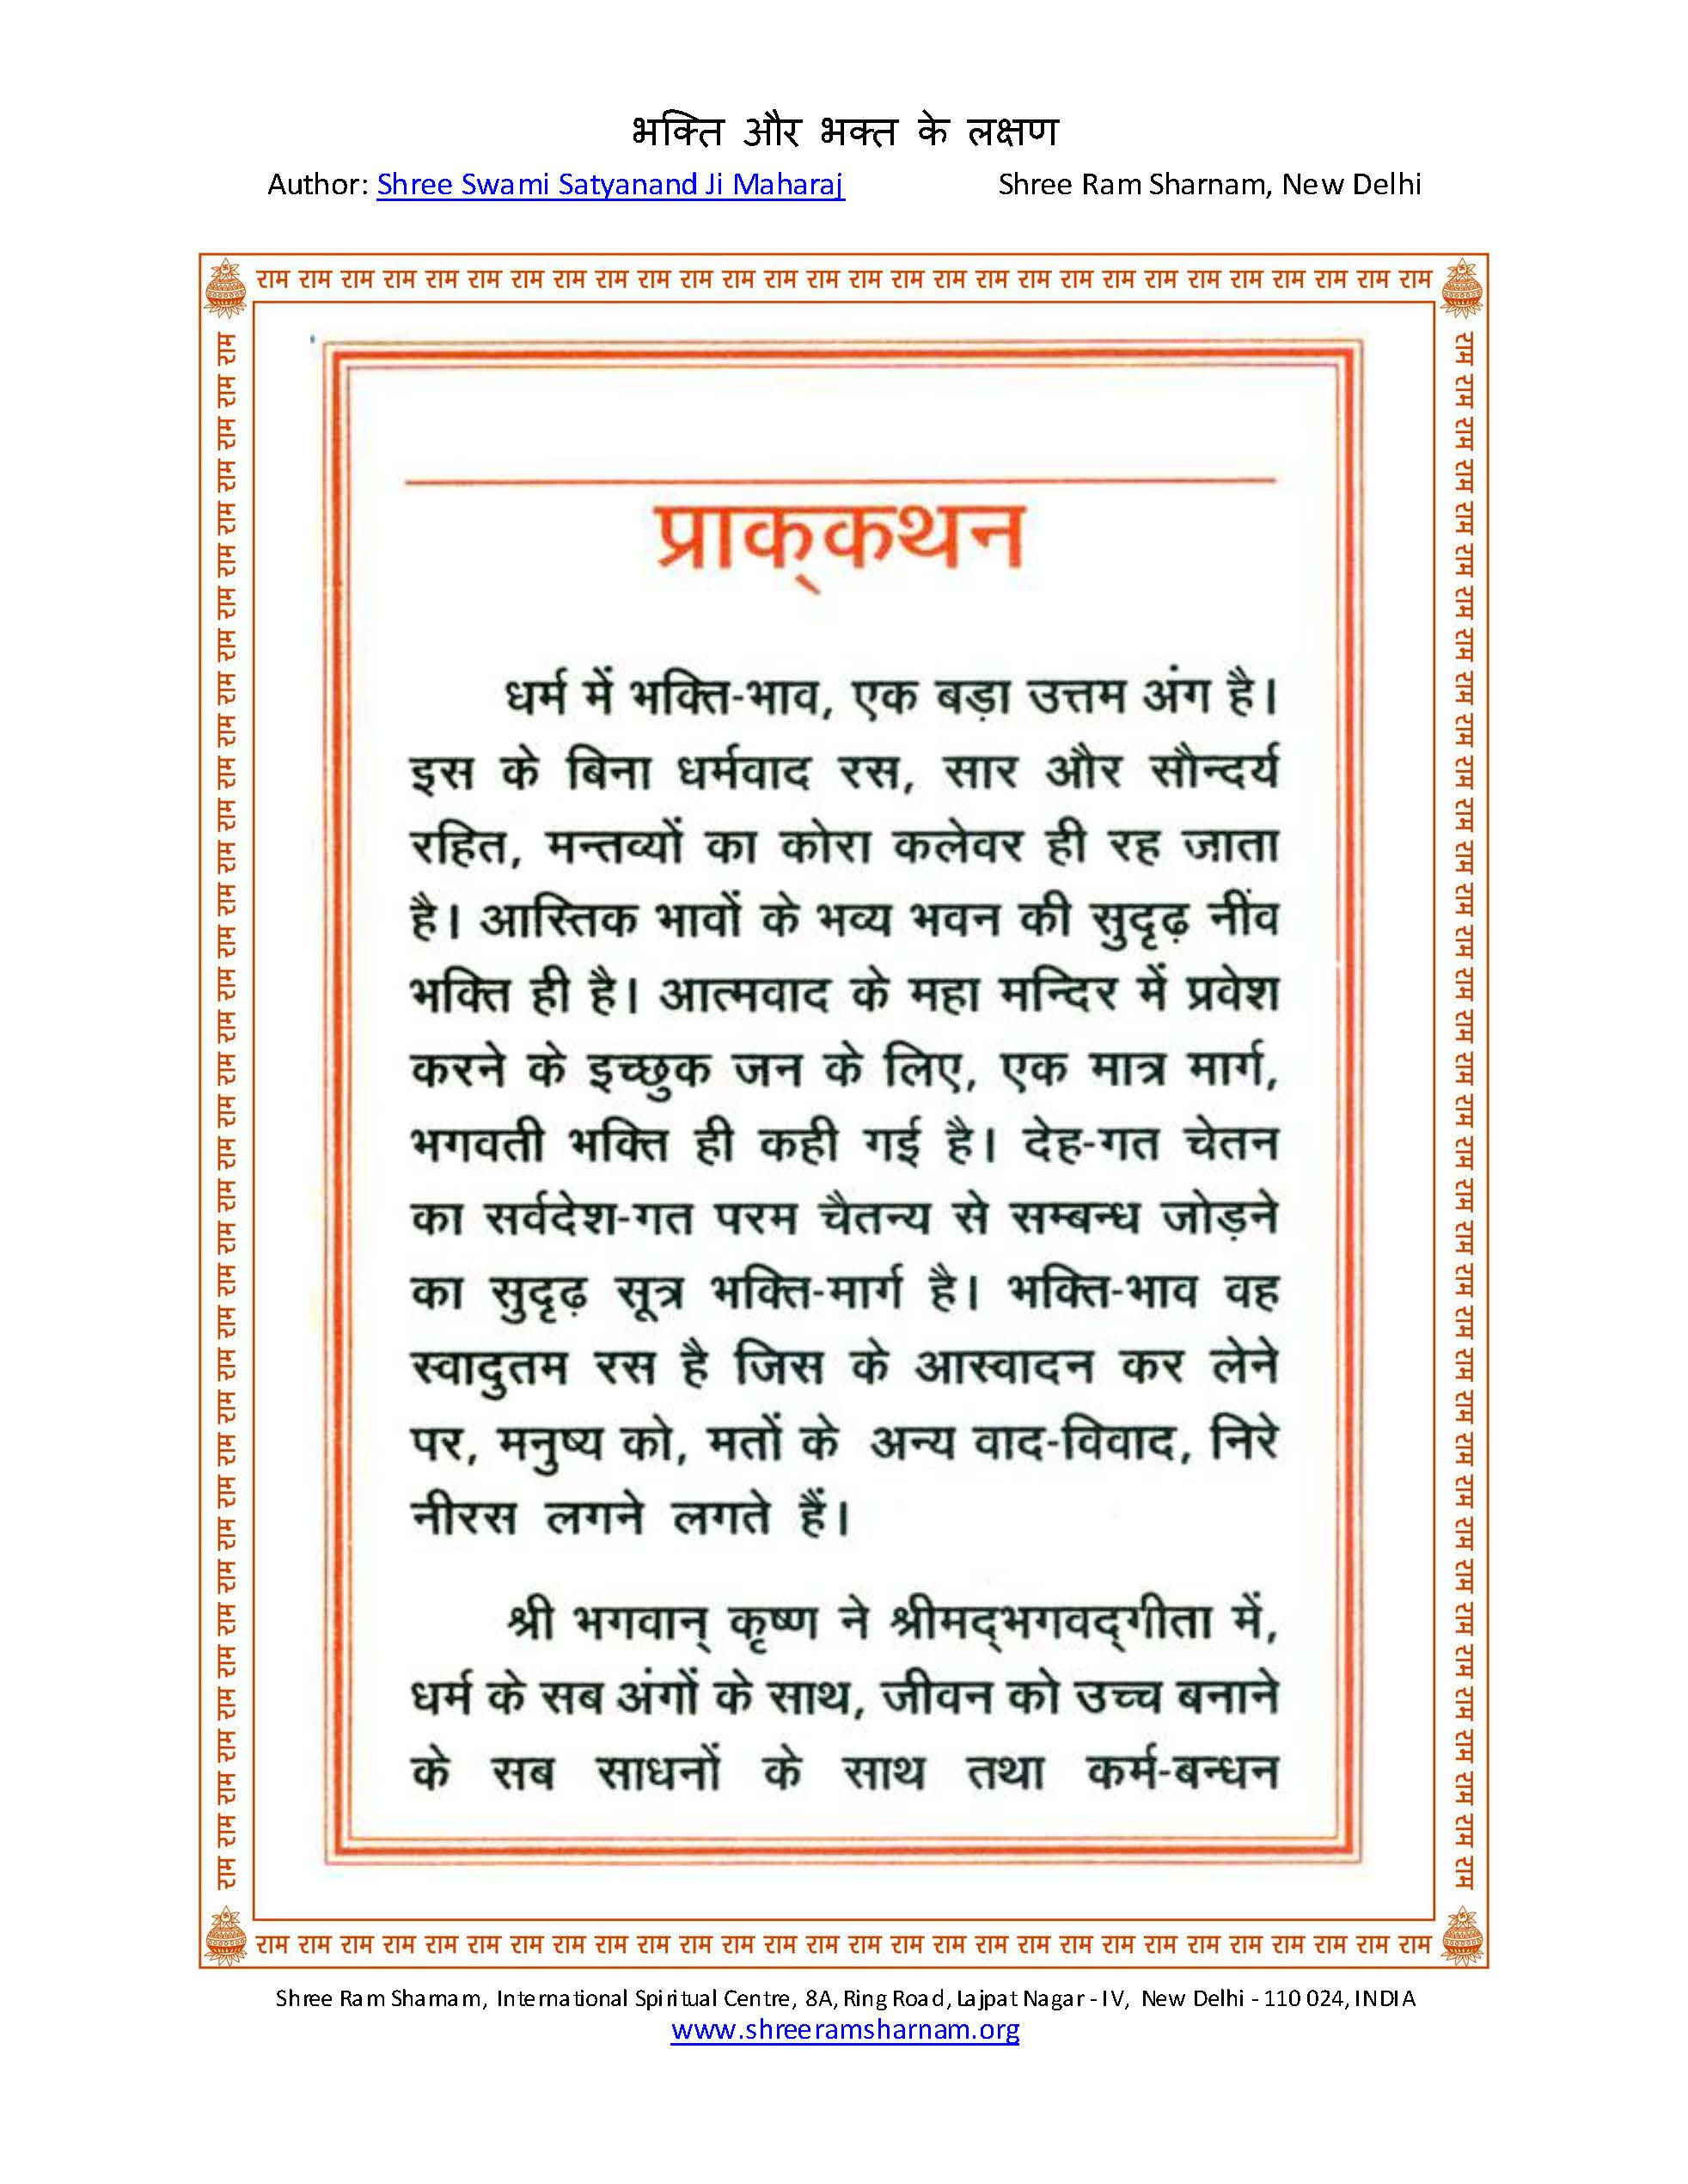 भक्ति और भक्त के लक्षण
Author: Shree Swami Satyanand Ji Maharaj Shree Ram Sharnam, New Delhi
राम राम राम राम राम राम राम राम राम राम राम राम राम राम राम राम राम राम राम राम राम राम राम राम राम राम राम राम
प्राक्कथन
धर्म में भक्ति-भाव, एक बड़ा उत्तम अंग है।
इस के बिना धर्मवाद रस, सार और सौन्दर्य
रहित, मन्तव्यों का कोरा कलेवर ही रह जाता
है। आस्तिक भावों के भव्य भवन की सुदृढ़ नींव
भक्ति ही है। आत्मवाद के महा मन्दिर में प्रवेश
करने के इच्छुक जन के लिए, एक मात्र मार्ग,
भगवती भक्ति ही कही गई है। देह-गत चेतन
का सर्वदेश-गत परम चैतन्य से सम्बन्ध जोड़ने
का सुदृढ़ सूत्र भक्ति-मार्ग है। भक्ति-भाव वह
स्वादुतम रस है जिस के आस्वादन कर लेने
पर, मनुष्य को, मतों के अन्य वाद-विवाद, निरे
नीरस लगने लगते हैं।
श्री भगवान् कृष्ण ने श्रीमद्भगवद्गीता में,
धर्म के सब अंगों के साथ, जीवन को उच्च बनाने
के सब साधनों के साथ तथा कर्म-बन्धन
राम राम राम राम राम राम राम राम राम राम राम राम राम राम राम राम राम राम राम राम राम राम राम राम राम राम राम राम
राम राम राम राम राम राम राम राम राम राम राम राम राम राम राम राम राम राम राम राम राम राम राम राम राम राम राम राम राम राम राम राम राम राम राम राम राम
राम राम राम राम राम राम राम राम राम राम राम राम राम राम राम राम राम राम राम राम राम राम राम राम राम राम राम राम राम राम राम राम राम राम राम राम राम
Shree Ram Sharnam, International Spiritual Centre, 8A, Ring Road, Lajpat Nagar - IV, New Delhi - 110 024, INDIA
www.shreeramsharnam.org